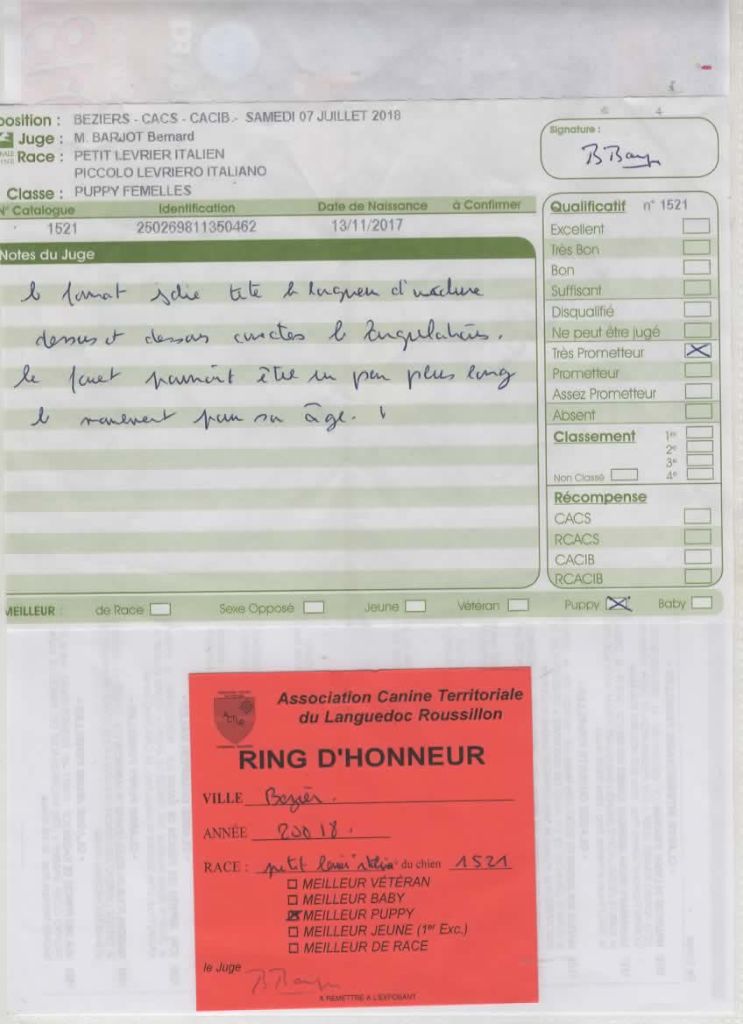 position : BEZIERS - CACS - CACIB - SAMEDI 07 JUILLET 2018
Juge : M. BARJOT Bernard
Race : PETIT LEVRIER ITALIEN
PICCOLO LEVRIERO ITALIANO
Classe : PUPPY FEMELLES
Signature :
N° Catalogue Identification Date de Naissance à Confirmer
1521 250269811350462 13/11/2017
Notes du Juge
le format tête la longueur d'
dessus et dessous correctes les angulations.
le fouet pourrait être un peu plus long
le mouvement pour son âge.
Qualificatif n° 1521
Excellent
Très Bon
Bon
Suffisant
Disqualifié
Ne peut être jugé
Très Prometteur
Prometteur
Assez Prometteur
Absent
Classement 1er
2e
3e
Non Classé 4e
Récompense
CACS
RCACS
CACIB
RCACIB
MEILLEUR : de Race Sexe Opposé Jeune Vétéran Puppy Baby
Association Canine Territoriale
du Languedoc Roussillon
RING D'HONNEUR
VILLE Bezier.
ANNÉE 20018.
RACE : petit du chien 1521
MEILLEUR VÉTÉRAN
MEILLEUR BABY
MEILLEUR PUPPY
MEILLEUR JEUNE (1er Exc.)
MEILLEUR DE RACE
le Juge
A REMETTRE A L'EXPOSANT